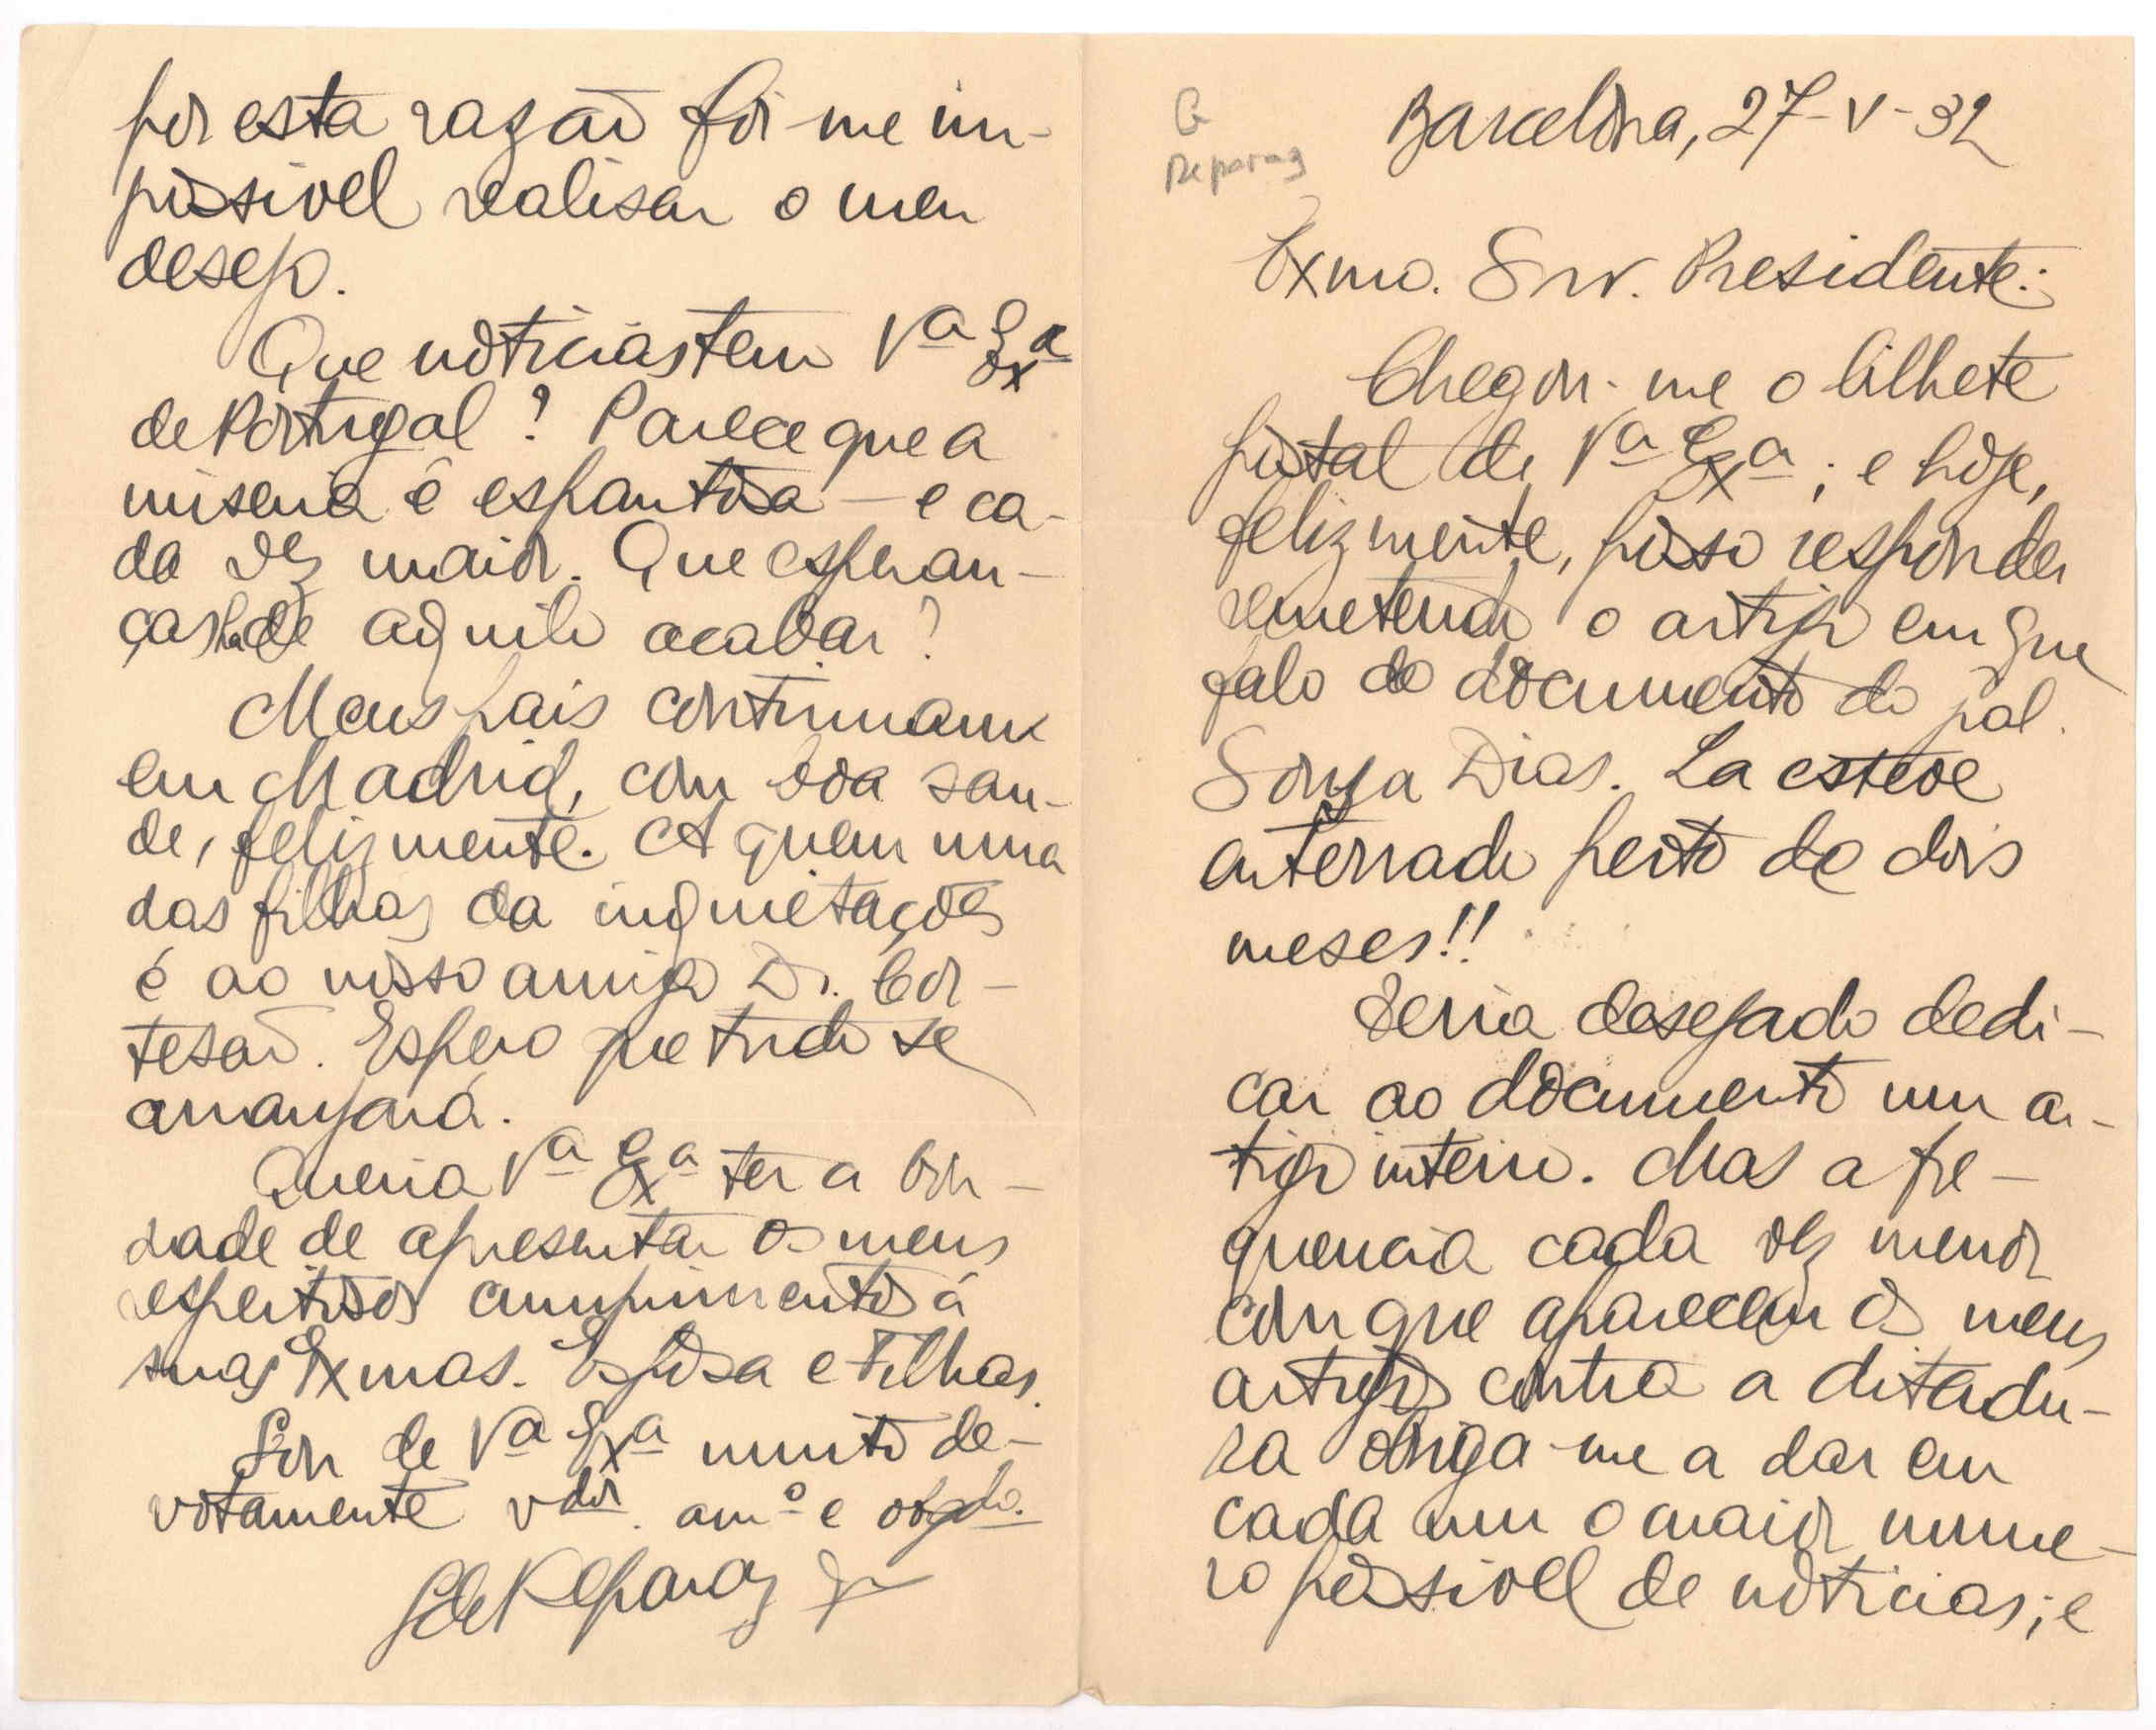 G
Reparaz
Barcelona, 27-V-32
Exmo. Snr. Presidente:
Chegou-me o bilhete
postal de Vª Exª; e hoje,
felizmente, posso responder
remetendo o artigo em que
falo do documento do
Sousa Dias. La esteve
enterrado perto de dois
meses!!
Teria desejado dedi-
car ao documento um ar-
tigo inteiro. Mas a fre-
quencia cada vez menor
com que aparecem os meus
artigos contra a ditadu-
ra obriga-me a dar em
cada um o maior nume-
ro possivel de noticias; e
por esta razão foi-me im-
possivel realisar o meu
desejo.
Que noticias tem Vª Exª
de Portugal? Parece que a
miseria é espantosa — e ca-
da vez maior. Que esperan-
ças ha de aquilo acabar?
Meus pais continuam
em Madrid, com boa sau-
de, felizmente. A quem uma
das filhas da inquietações
é ao nosso amigo Dr. Cor-
tesão. Espero que tudo se
arranjará.
Queria Vª Exª ter a bon-
dade de apresentar os meus
respeitosos cumprimentos á
suas Exmas. Esposa e Filhas.
Sou de Vª Exª muito de-
votamente vdor. amº e obgdo.
G de Reparaz Jr